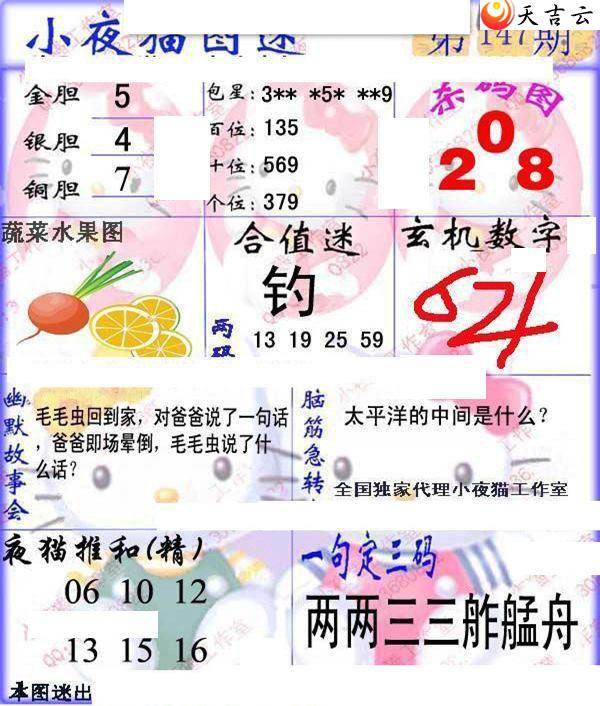 天吉云
小夜猫图迷
第147期
金胆 5
银胆 4
铜胆 7
包星: 3** *5* **9
百位: 135
十位: 569
个位: 379
杀码图
208
蔬菜水果图
合值迷
钓
两码
13 19 25 59
玄机数字
幽默故事会
毛毛虫回到家，对爸爸说了一句话
，爸爸即场晕倒，毛毛虫说了什
么话？
脑筋急转
太平洋的中间是什么？
全国独家代理小夜猫工作室
夜猫推和(精)
06 10 12
13 15 16
一句定三码
两两三三舴艋舟
本图迷出